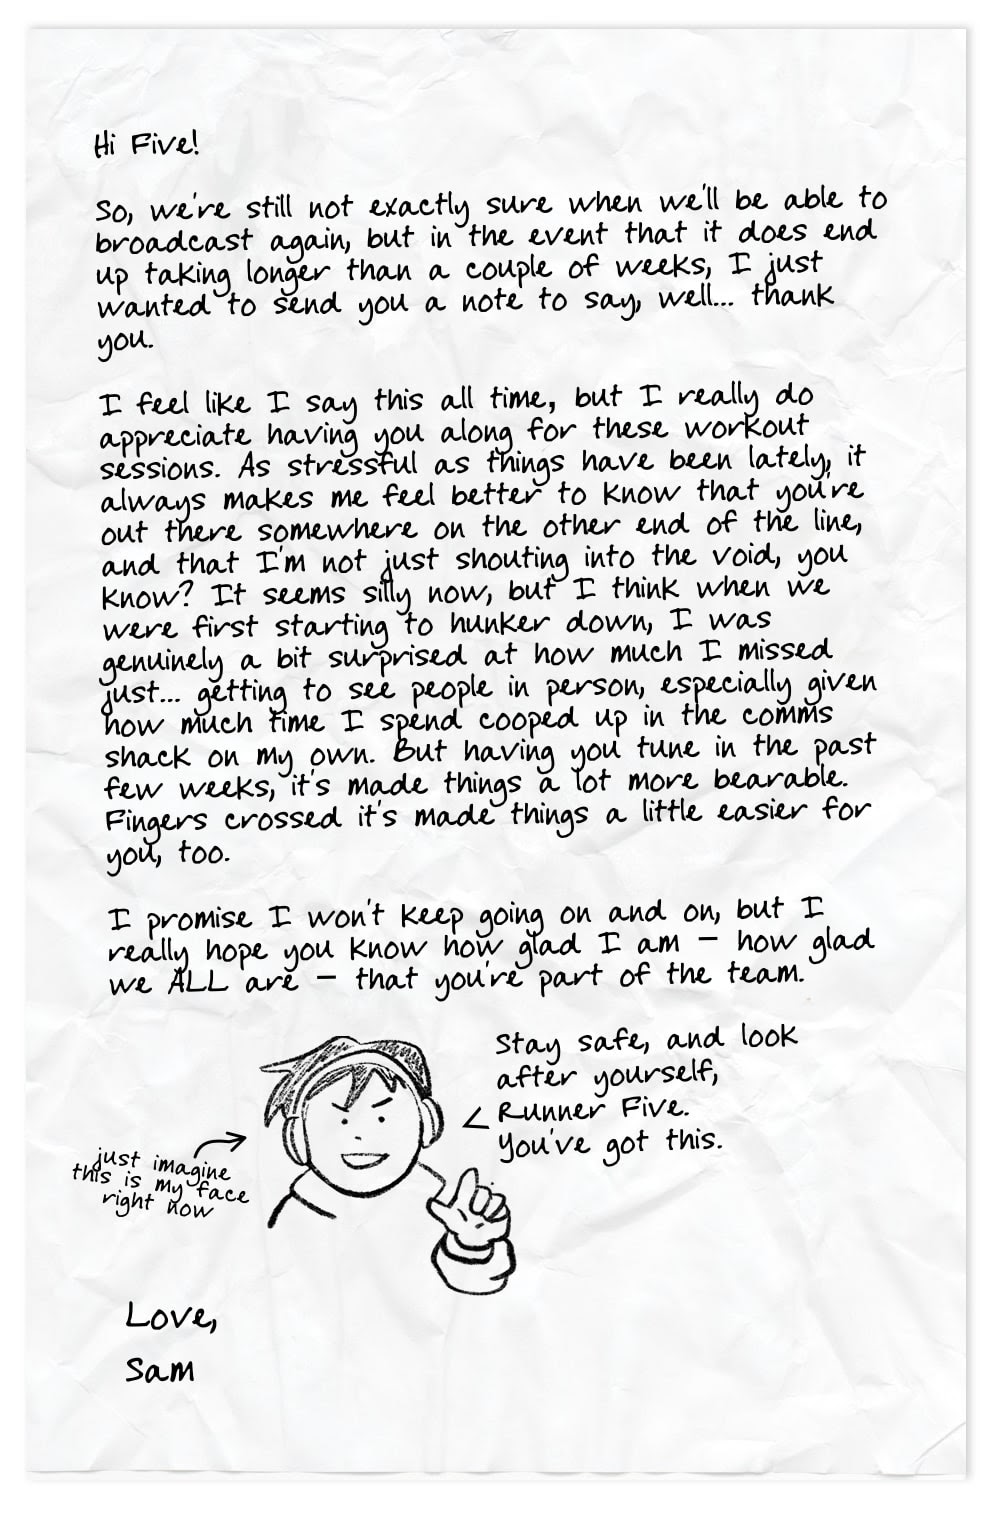 Hi Five!
So, we're still not exactly sure when we'll be able to
broadcast again, but in the event that it does end
up taking longer than a couple of weeks, I just
wanted to send you a note to say, well... thank
you.
I feel like I say this all time, but I really do
appreciate having you along for these workout
sessions. As stressful as things have been lately, it
always makes me feel better to know that you're
out there somewhere on the other end of the line,
and that I'm not just shouting into the void, you
know? It seems silly now, but I think when we
were first starting to hunker down, I was
genuinely a bit surprised at how much I missed
just... getting to see people in person, especially given
how much time I spend cooped up in the comms
shack on my own. But having you tune in the past
few weeks, it's made things a lot more bearable.
Fingers crossed it's made things a little easier for
you, too.
I promise I won't keep going on and on, but I
really hope you know how glad I am – how glad
we ALL are – that you're part of the team.
Stay safe, and look
after yourself,
Runner Five.
You've got this.
just imagine
this is my face
right now
Love,
Sam